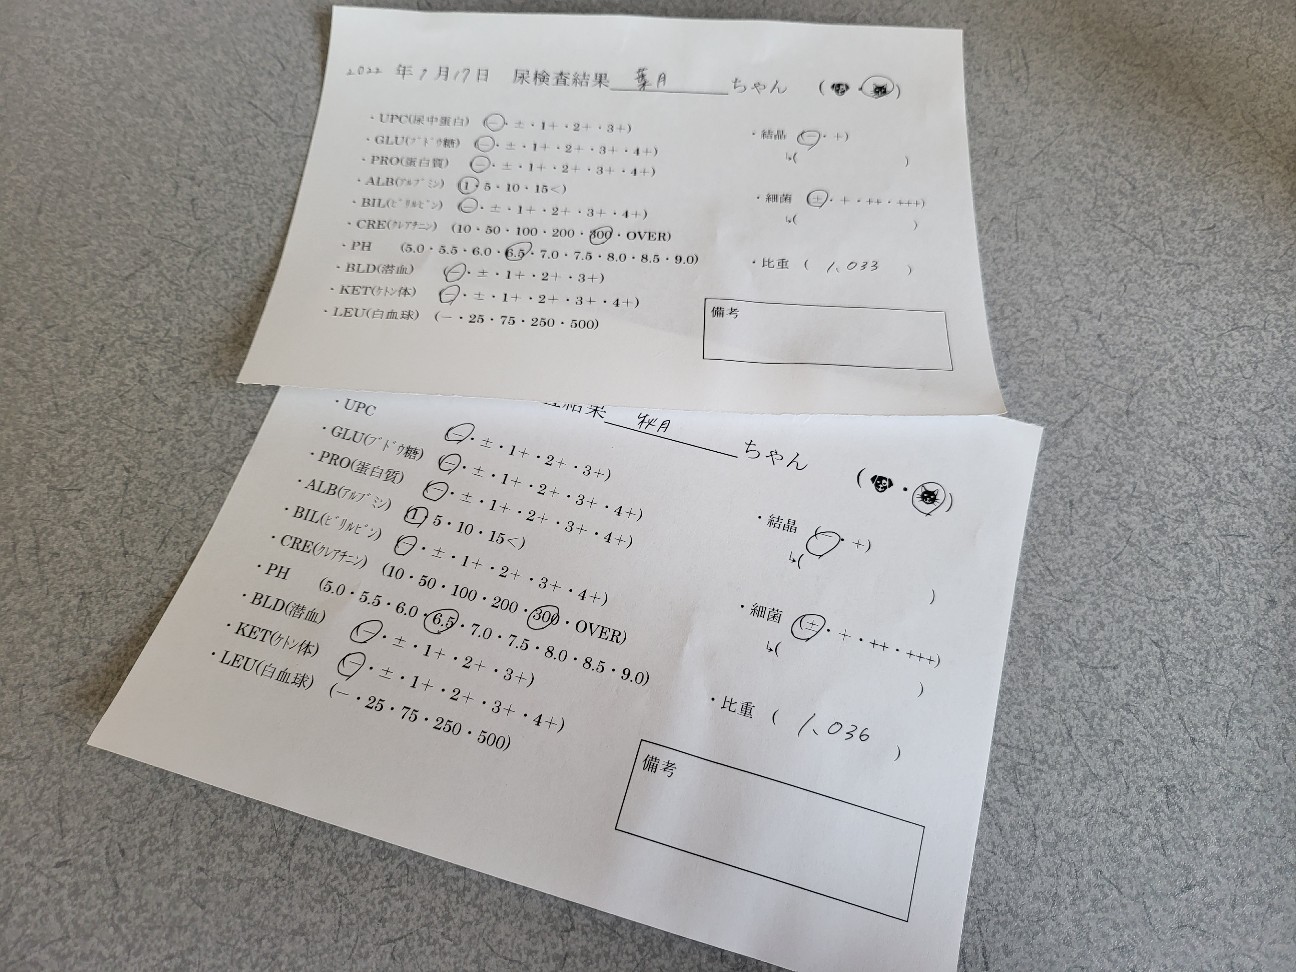 2022 年 9 月 17 日 尿検査結果 葉月 ちゃん ( ・ )
・UPC(尿中蛋白) (−・±・1+・2+・3+)
・GLU(ブドウ糖) (−・±・1+・2+・3+・4+)
・PRO(蛋白質) (−・±・1+・2+・3+・4+)
・ALB(アルブミン) (1・5・10・15<)
・BIL(ビリルビン) (−・±・1+・2+・3+・4+)
・CRE(クレアチニン) (10・50・100・200・300・OVER)
・PH (5.0・5.5・6.0・6.5・7.0・7.5・8.0・8.5・9.0)
・BLD(潜血) (−・±・1+・2+・3+)
・KET(ケトン体) (−・±・1+・2+・3+・4+)
・LEU(白血球) (−・25・75・250・500)
・結晶 (−・+)
↳( )
・細菌 (±・+・++・+++)
↳( )
・比重 ( 1.033 )
備考
査結果 秋月 ちゃん ( ・ )
・UPC (−・±・1+・2+・3+)
・GLU(ブドウ糖) (−・±・1+・2+・3+・4+)
・PRO(蛋白質) (−・±・1+・2+・3+・4+)
・ALB(アルブミン) (1・5・10・15<)
・BIL(ビリルビン) (−・±・1+・2+・3+・4+)
・CRE(クレアチニン) (10・50・100・200・300・OVER)
・PH (5.0・5.5・6.0・6.5・7.0・7.5・8.0・8.5・9.0)
・BLD(潜血) (−・±・1+・2+・3+)
・KET(ケトン体) (−・±・1+・2+・3+・4+)
・LEU(白血球) (−・25・75・250・500)
・結晶 (−・+)
↳( )
・細菌 (±・+・++・+++)
↳( )
・比重 ( 1.036 )
備考